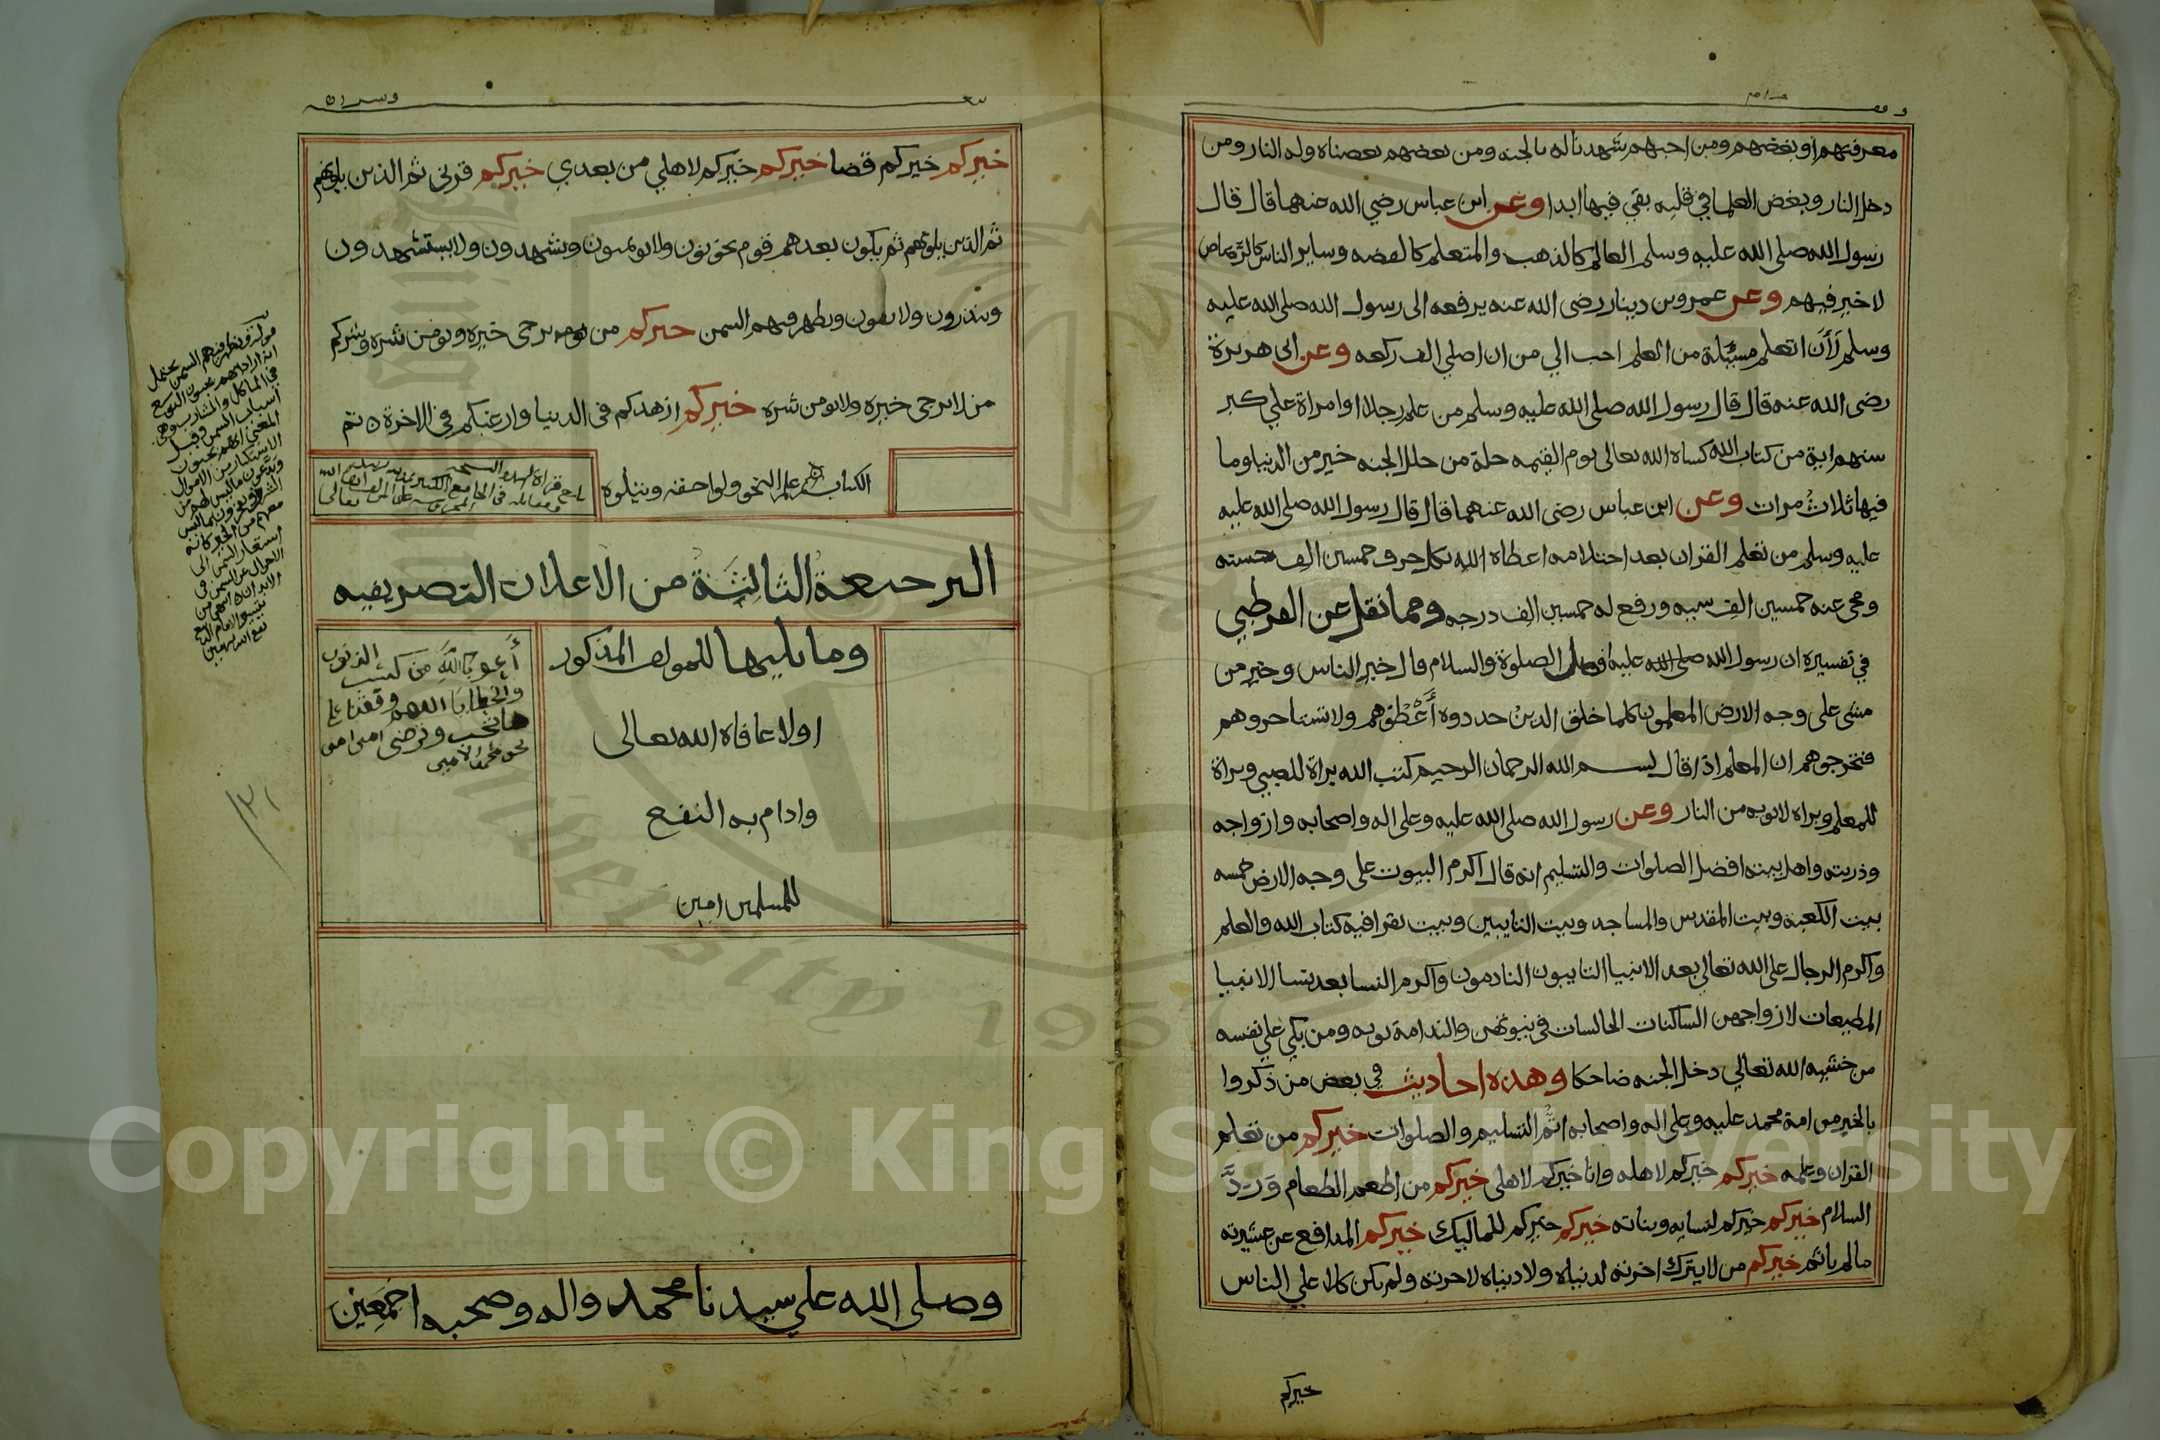 معرفتهم او بغضهم ومن احبهم شهدنا له بالجنه ومن بغضهم بعضناه وله النار ومن
دخل النار وبغض العلما في قلبه بقي فيها ابدا وعن ابن عباس رضي الله عنهما قال قال
رسول الله صلى الله عليه وسلم العالم كالذهب والمتعلم كالفضه وساير الناس كالرصاص
لا خير فيهم وعن عمرو بن دينار رضى الله عنه يرفعه الى رسول الله صلى الله عليه
وسلم لأن اتعلم مسئلة من العلم احب الي من ان اصلي الف ركعه وعن ابى هريرة
رضى الله عنه قال قال رسول الله صلى الله عليه وسلم من علم رجلا او امراة علي كبر
سنهم اية من كتاب الله كساه الله تعالى يوم القيمه حلة من حلل الجنه خير من الدنيا وما
فيها ثلاث مرات وعن ابن عباس رضى الله عنهما قال قال رسول الله صلى الله عليه
عليه وسلم من تعلم القران بعد احتلامه اعطاه الله بكل حرف خمسين الف حسنه
ومحى عنه خمسين الف سيه ورفع له خمسين الف درجه ومما نقل عن القرطبي
في تفسيره ان رسول الله صلى الله عليه افضل الصلوة والسلام قال خير الناس وخير من
مشى على وجه الارض المعلمون كلما خلق الدين جددوه أعطوهم ولا تستاجروهم
فتخرجوهم ان المعلم اذا قال بسم الله الرحمان الرحيم كتب الله براة للصبي وبراة
للمعلم وبراه لابويه من النار وعن رسول الله صلى الله عليه وعلى اله واصحابه وازواجه
وذريته واهل بيته افضل الصلوات والتسليم انه قال اكرم البيوت على وجه الارض خمسه
بيت الكعبه وبيت المقدس والمساجد وبيت التايبين وبيت يقرا فيه كتاب الله والعلم
واكرم الرجال على الله تعالي بعد الانبيا التايبون النادمون واكرم النسا بعد نسا الانبيا
المطيعات لازواجهن الساكنات الجالسات في بيوتهن والندامة توبه ومن بكى علي نفسه
من خشيه الله تعالي دخل الجنه ضاحكا وهذه احاديث في بعض من ذكروا
بالخير من امة محمد عليه وعلى اله واصحابه اتم التسليم والصلوات خيركم من تعلم
القران وعلمه خيركم خيركم لاهله وانا خيركم لاهلى خيركم من اطعم الطعام ورد
السلام خيركم خيركم لنسايه وبناته خيركم خيركم للمماليك خيركم المدافع عن عشيرته
مالم ياثم خيركم من لا يترك اخرته لدنياه ولا دنياه لاخرته ولم يكن كلا علي الناس
خيركم
خيركم خيركم قضا خيركم خيركم لاهلي من بعدي خيركم قرني ثم الذين يلونهم
ثم الذين يلونهم ثم يكون بعدهم قوم يخونون ولا يوتمنون ويشهدون ولا يستشهدون
وينذرون ولا يفون ويظهر فيهم السمن خيركم من يرجى خيره ويومن شره وشركم
من لا يرجى خيره ولا يومن شره خيركم ازهدكم في الدنيا وارغبكم في الاخرة تم
الكتاب علم النحو ولواحقه ويتلوه
الترجمعة الثالثة من الاعلان التصريفيه
وما يليها للمولف المذكور
اولا عافاه الله تعالى
وادام به النفع
للمسلمين امين
أعوذ بالله من كسب الذنوب
والخطايا اللهم وفقنا لما
تحب وترضى امين امين
وصلى الله علي سيدنا محمد واله وصحبه اجمعين
قوله ويظهر فيهم السمن يحتمل
انه اراد انهم يحبون التوسع
في الماكل والمشارب وهي
اسباب السمن وقيل
المعنى انهم يحبون
الاستكثار من الاموال
ويدعون ما ليس لهم من
الشرف ويفخرون بما ليس
١٣١
Copyright © King Saud University